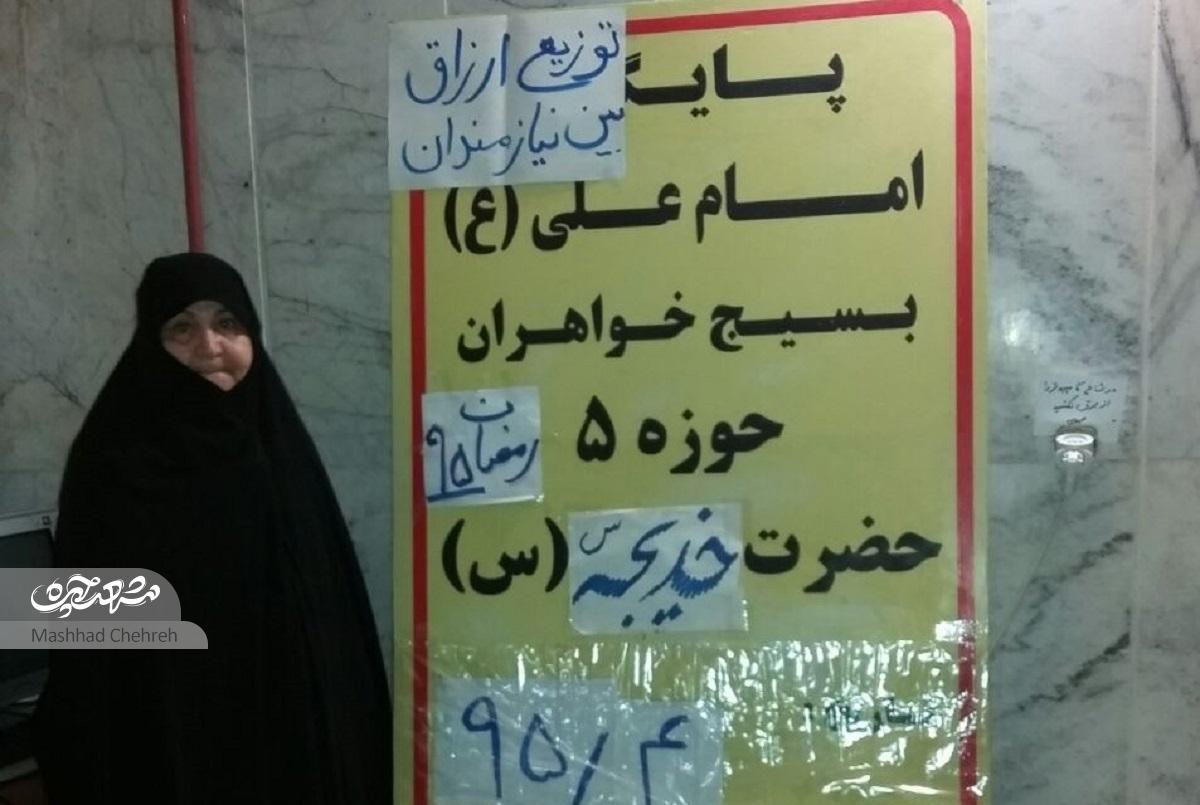 توزیع ارزاق
بین نیازمندان
پایگ
امام علی (ع)
بسیج خواهران
حوزه ۵
رمضان
۹۵
حضرت خدیجه س (س)
۹۵/۴
مشهد چهره
Mashhad Chehreh